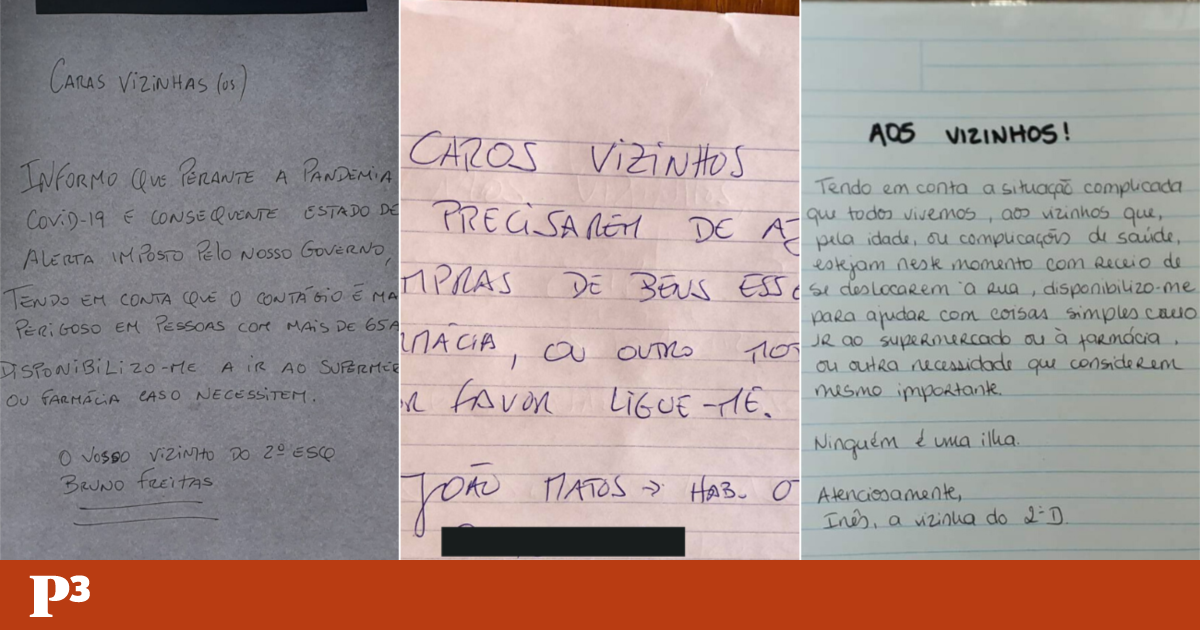 CARAS VIZINHAS (OS)
INFORMO QUE PERANTE A PANDEMIA
COVID-19 E CONSEQUENTE ESTADO DE
ALERTA IMPOSTO PELO NOSSO GOVERNO,
TENDO EM CONTA QUE O CONTÁGIO É MA
PERIGOSO EM PESSOAS COM MAIS DE 65A
DISPONIBILIZO-ME A IR AO SUPERME
OU FARMÁCIA CASO NECESSITEM.
O VOSSO VIZINHO DO 2º ESQ
BRUNO FREITAS
CAROS VIZINHOS
PRECISAREM DE AJ
MPRAS DE BENS ESSE
RMÁCIA, OU OUTRO MOT
R FAVOR LIGUE-ME.
JOÃO MATOS → HAB. O
AOS VIZINHOS!
Tendo em conta a situação complicada
que todos vivemos, aos vizinhos que,
pela idade, ou complicações de saúde,
estejam neste momento com receio de
se deslocarem à rua, disponibilizo-me
para ajudar com coisas simples como
IR ao supermercado ou à farmácia,
ou outra necessidade que considerem
mesmo importante.
Ninguém é uma ilha.
Atenciosamente,
Inês, a vizinha do 2º D.
P3